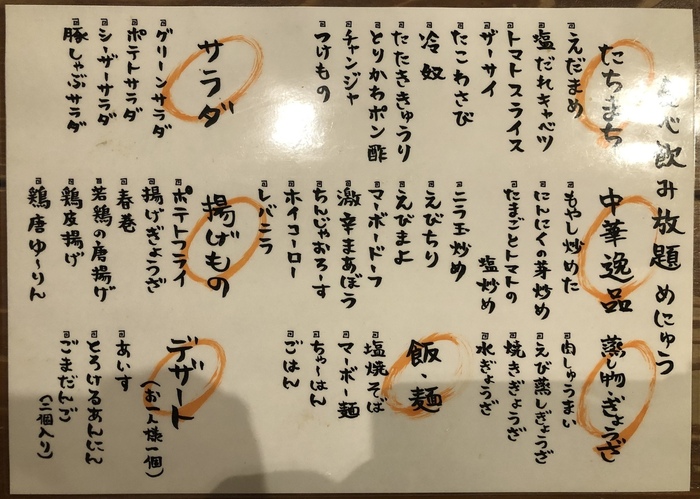 食べ飲み放題 めにゅう
たちまち
えだまめ
塩だれキャベツ
トマトスライス
ザーサイ
たこわさび
冷奴
たたききゅうり
とりかわポン酢
チャンジャ
つけもの
サラダ
グリーンサラダ
ポテトサラダ
シーザーサラダ
豚しゃぶサラダ
中華逸品
もやし炒めた
にんにくの芽炒め
たまごとトマトの
塩炒め
ニラ玉炒め
えびちり
えびまよ
マーボードーフ
激辛まあぼう
ちんじゃおろーす
ホイコーロー
レバニラ
揚げもの
ポテトフライ
揚げぎょうざ
春巻
若鶏の唐揚げ
鶏皮揚げ
鶏唐ゆ〜りん
蒸し物・ぎょうざ
肉しゅうまい
えび蒸しぎょうざ
焼きぎょうざ
水ぎょうざ
飯・麺
塩焼そば
マーボー麺
ちゃーはん
ごはん
デザート
(お一人様一個)
あいす
とろけるあんにん
ごまだんご
(二個入り)